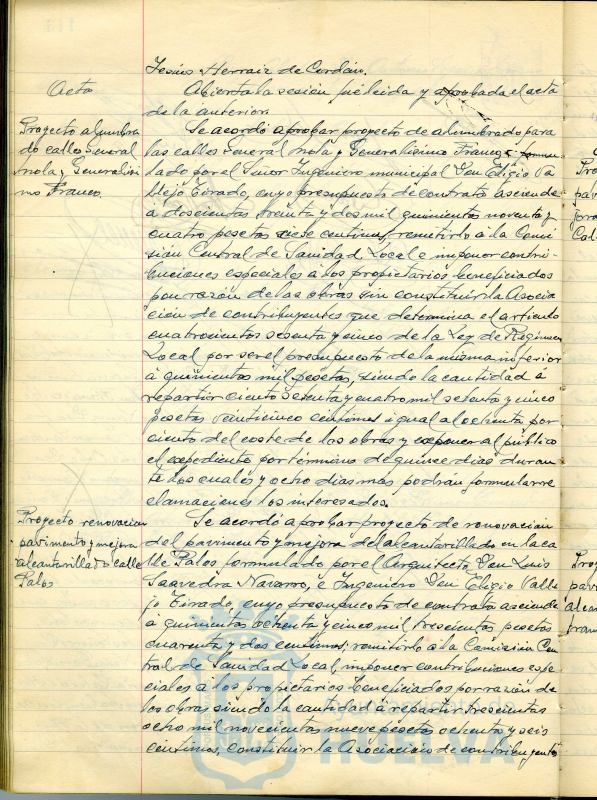 Jesús Herraiz de Cordán.
Acta
Abierta la sesión fué leida y aprobada el acta
de la anterior.
Proyecto alumbra
do calles General
Mola y Generalísi
mo Franco.
Se acordó aprobar proyecto de alumbrado para
las calles General Mola y Generalísimo Franco, formu-
lado por el Señor Ingeniero municipal Don Eligio Va
llejo Tirado, cuyo presupuesto de contrata asciende
á doscientas treinta y dos mil quinientas noventa y
cuatro pesetas siete centimos, remitirlo á la Comi
sión Central de Sanidad Local e imponer contri-
buciones especiales á los propietarios beneficiados
por razón de las obras sin constituir la Asocia
ción de contribuyentes que determina el artículo
cuatrocientos sesenta y cinco de la Ley de Régimen
Local por ser el presupuesto de la misma inferior
á quinientas mil pesetas, siendo la cantidad á
repartir ciento setenta y cuatro mil setenta y cinco
pesetas veinticinco centimos igual al ochenta por
ciento del coste de las obras y exponer al público
el expediente por término de quince dias duran
te los cuales y ocho dias más podran formular re
clamaciones los interesados.
Proyecto renovacion
pavimento y mejora
alcantarillado calle
Palos
Se acordó aprobar proyecto de renovación
del pavimento y mejora del alcantarillado en la ca
lle Palos, formulado por el Arquitecto Don Luis
Saavedra Navarro, é Ingeniero Don Eligio Valle
jo Tirado, cuyo presupuesto de contrata asciende
á quinientas ochenta y cinco mil trescientas pesetas
cuarenta y dos centimos; remitirlo á la Comisión Cen
tral de Sanidad Local, imponer contribuciones espe
ciales á los propietarios beneficiados por razón de
las obras siendo la cantidad á repartir trescientas
ocho mil novecientas nueve pesetas ochenta y seis
centimos, constituir la Asociación de contribuyentes
HUELVA